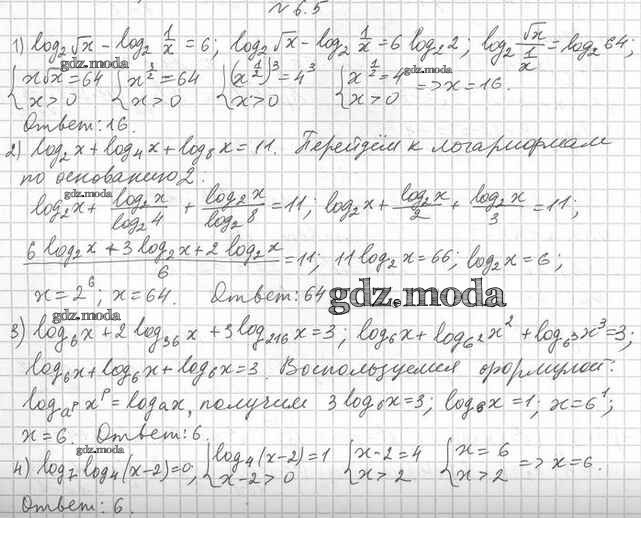 № 6.5
1) log₂√x - log₂ 1/x = 6; log₂√x - log₂ 1/x = 6 log₂2; log₂ √x/(1/x) = log₂64;
gdz.moda
gdz.moda
{x√x = 64 {x^(3/2) = 64 {(x^(1/2))³ = 4³ {x^(1/2) = 4 => x = 16.
{x > 0 {x > 0 {x > 0 {x > 0
Ответ: 16.
2) log₂x + log₄x + log₈x = 11. Перейдём к логарифмам
по основанию 2.
gdz.moda
log₂x + log₂x/log₂4 + log₂x/log₂8 = 11; log₂x + log₂x/2 + log₂x/3 = 11;
(6 log₂x + 3 log₂x + 2 log₂x)/6 = 11; 11 log₂x = 66; log₂x = 6;
x = 2⁶; x = 64. Ответ: 64
gdz.moda
3) log₆x + 2 log₃₆x + 3 log₂₁₆x = 3; log₆x + log₆²x² + log₆³x³ = 3;
gdz.moda
log₆x + log₆x + log₆x = 3. Воспользуемся формулой:
log_(a^p) x^p = log_a x, получим 3 log₆x = 3; log₆x = 1; x = 6¹;
x = 6. Ответ: 6.
gdz.moda
gdz.moda
4) log₇ log₄(x-2) = 0; {log₄(x-2) = 1 {x-2 = 4 {x = 6 => x = 6.
{x-2 > 0 {x > 2 {x > 2
Ответ: 6.